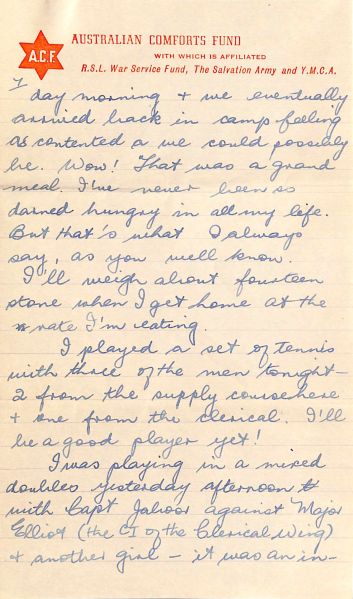 A.C.F.
AUSTRALIAN COMFORTS FUND
WITH WHICH IS AFFILIATED
R.S.L. War Service Fund, The Salvation Army and Y.M.C.A.
day morning & we eventually
arrived back in camp feeling
as contented a we could possibly
be. Wow! That was a grand
meal. I've never been so
darned hungry in all my life.
But that's what I always
say, as you well know.
I'll weigh about fourteen
stone when I get home at the
rate I'm eating.
I played a set of tennis
with three of the men tonight –
2 from the supply course here
& one from the clerical. I'll
be a good player yet!
I was playing in a mixed
doubles yesterday afternoon
with Capt against Major
Elliot (the CI of the Clerical Wing)
& another girl – it was an in-